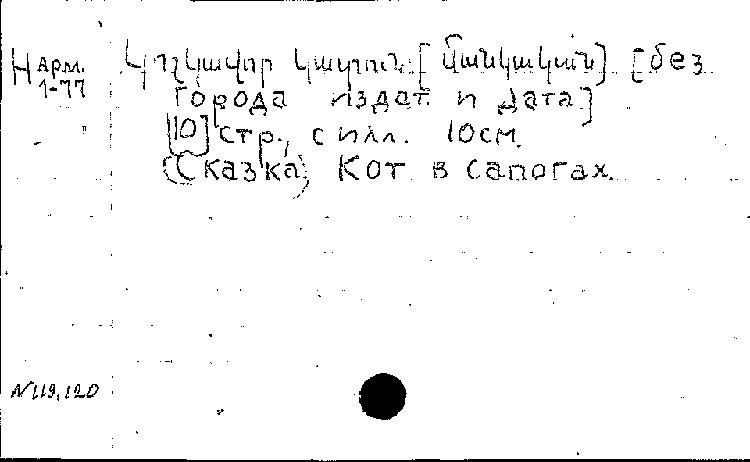 Н Арм.
1-77
Կոշկավոր կատուն [Մանկական] [без
города издат. и дата]
[10] стр., с илл. 10см.
(Сказка) Кот в сапогах.
N 119,120